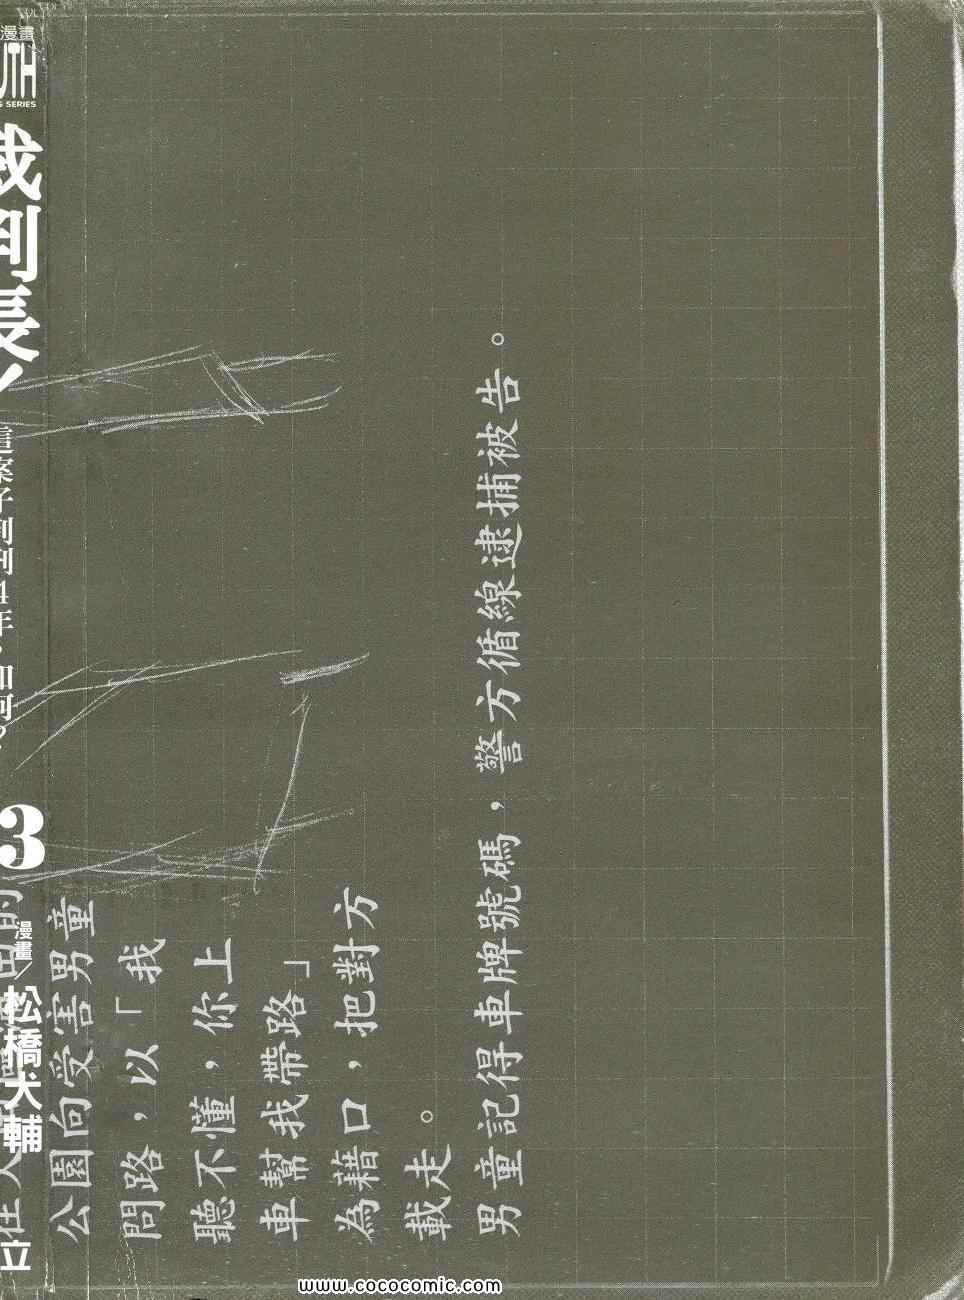 漫畫
UTH
S SERIES
裁判長!
這案子判刑4年,如何?
3
漫畫/
松橋犬輔
立
公園向受害男童
問路,以「我
聽不懂,你上
車幫我帶路」
為藉口,把對方
載走。
男童記得車牌號碼,警方循線逮捕被告。
www.cococomic.com